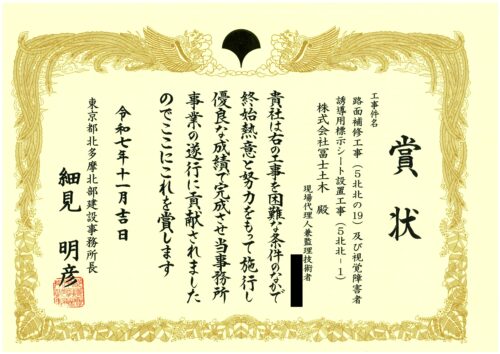 賞状
工事件名
路面補修工事(5北北の19)及び視覚障害者
誘導用標示シート設置工事(5北北-1)
株式会社冨士土木 殿
現場代理人兼監理技術者
貴社は右の工事を困難な条件のなかで
終始熱意と努力をもって施行し
優良な成績で完成させ当事務所
事業の遂行に貢献されました
のでここにこれを賞します
令和七年十一月吉日
東京都北多摩北部建設事務所長
細見 明彦